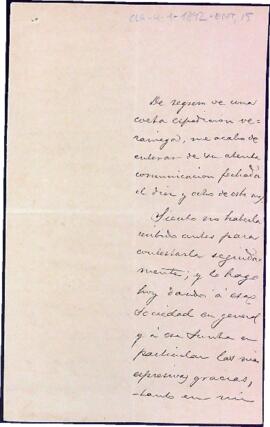 De regreso de una
corta expedicion ve-
raniega, me acabo de
enterar de su atenta
comunicacion fechada
el diez y ocho de este mes
Siento no haberla
recibido antes para
contestarla seguida-
mente; y lo hago
hoy dando á esa
Sociedad en general
y á esa Junta en
particular las mas
espresivas gracias,
tanto en mi